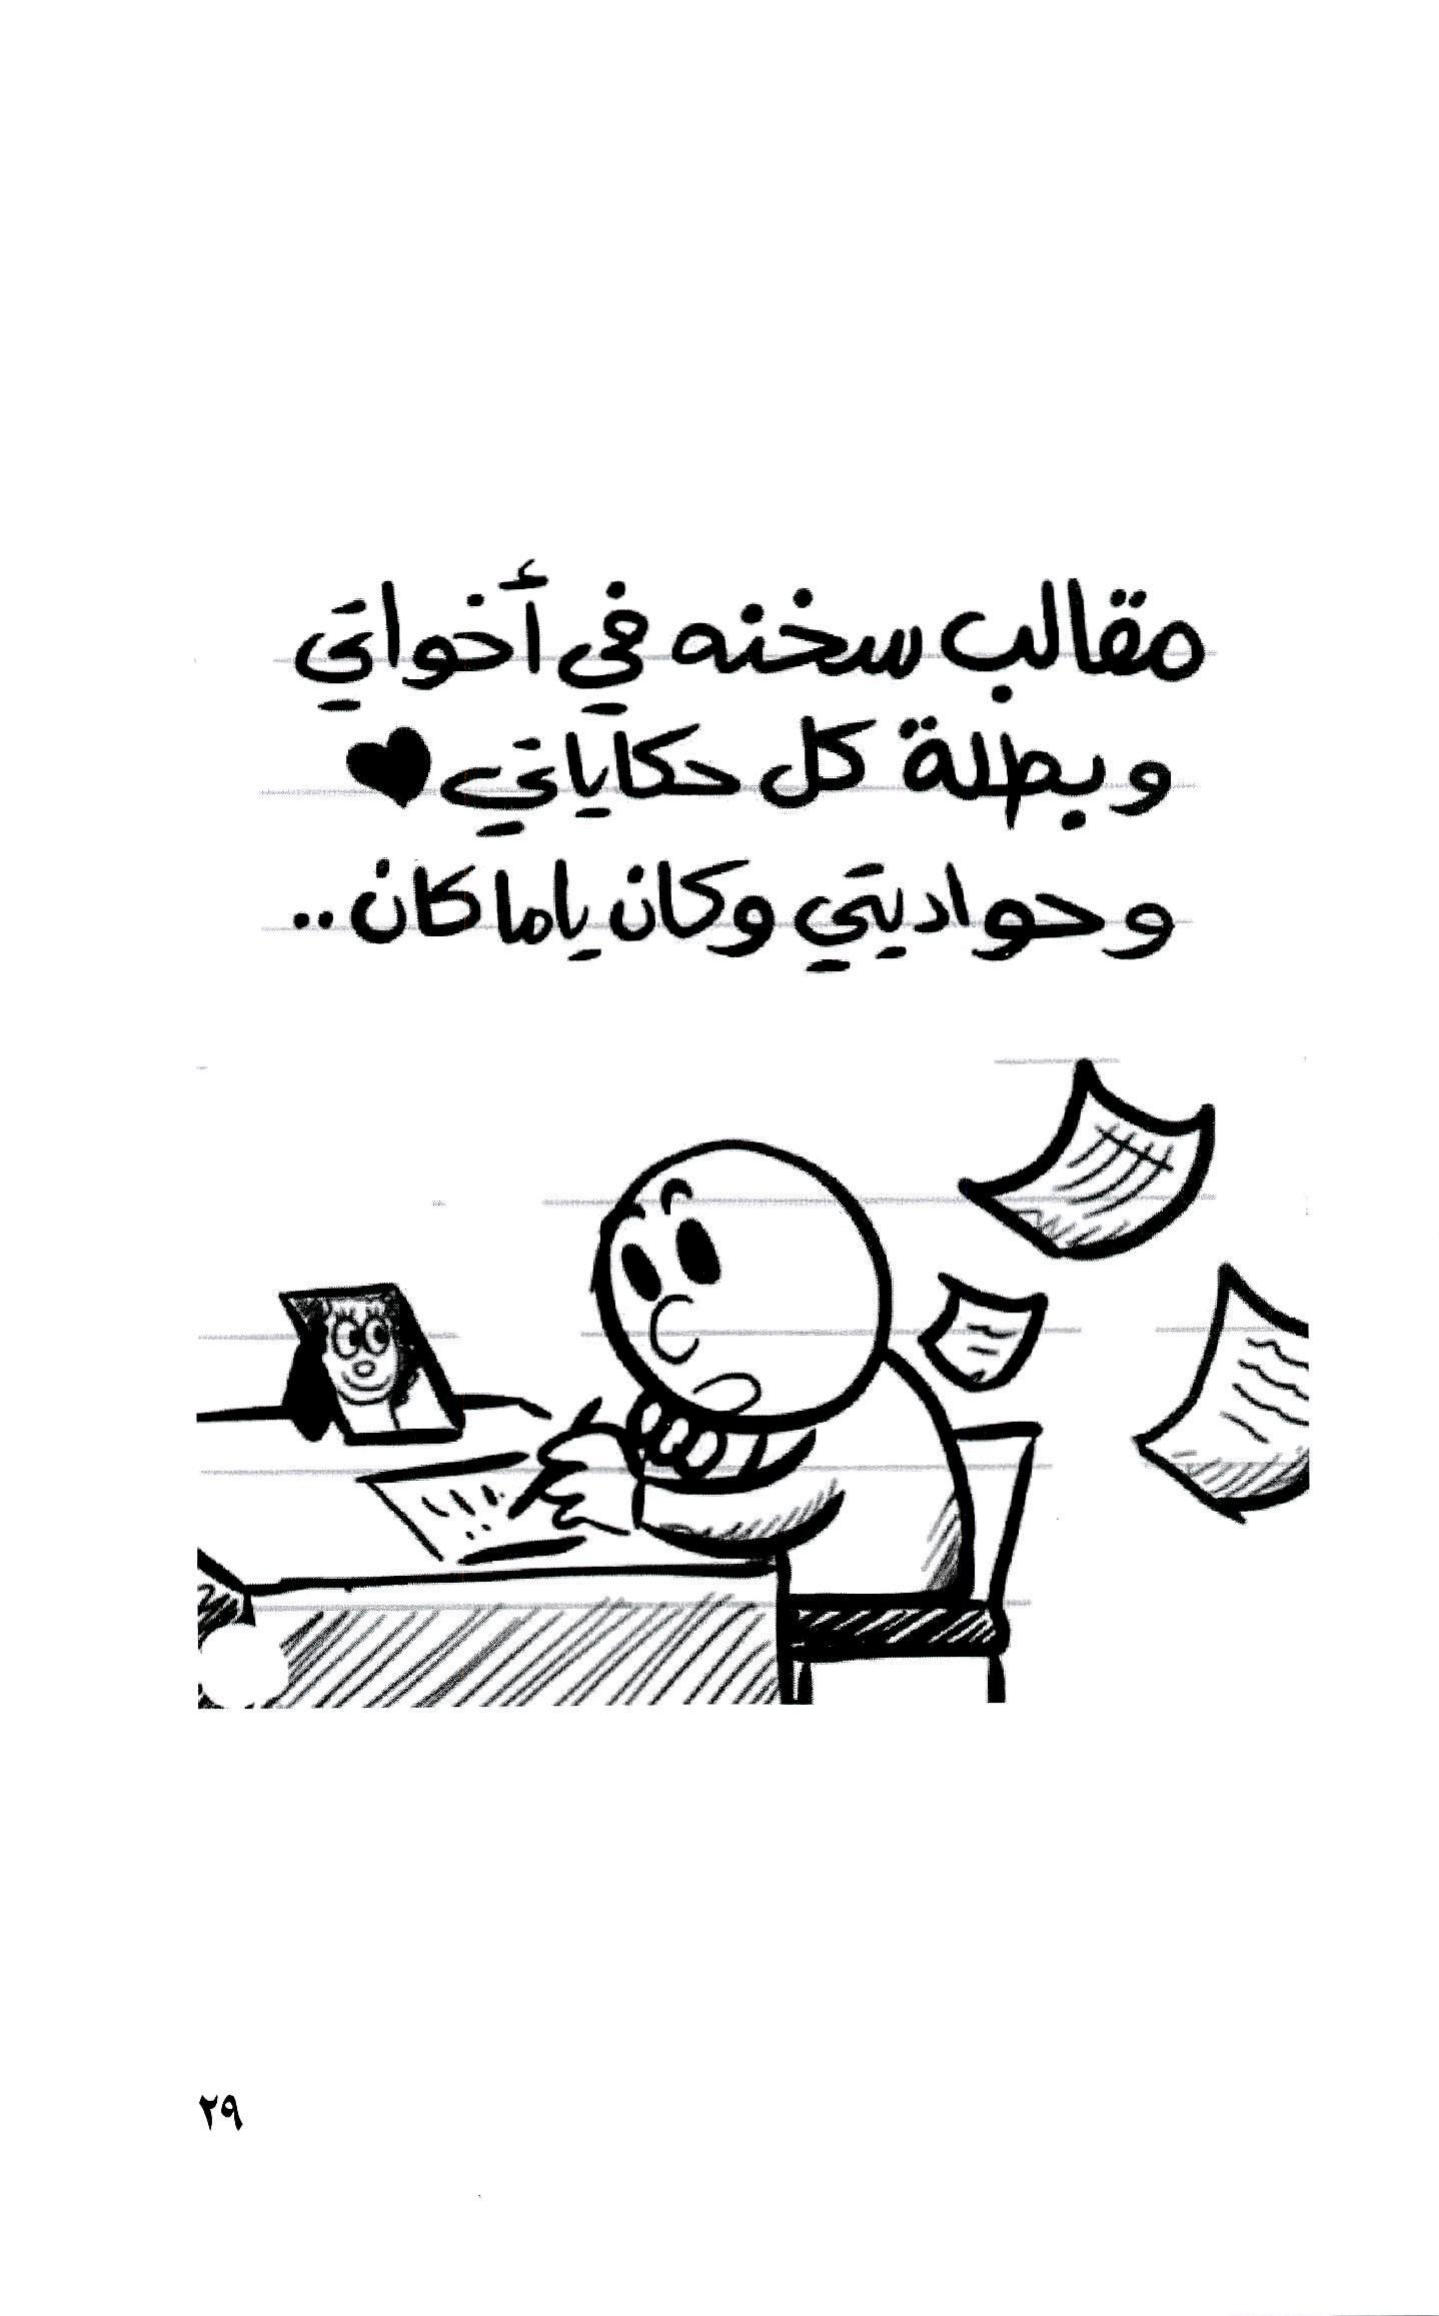 مقالب سخنه في أخواتي
وبطلة كل حكاياتي ♥
وحواديتي وكان ياما كان..
٢٩